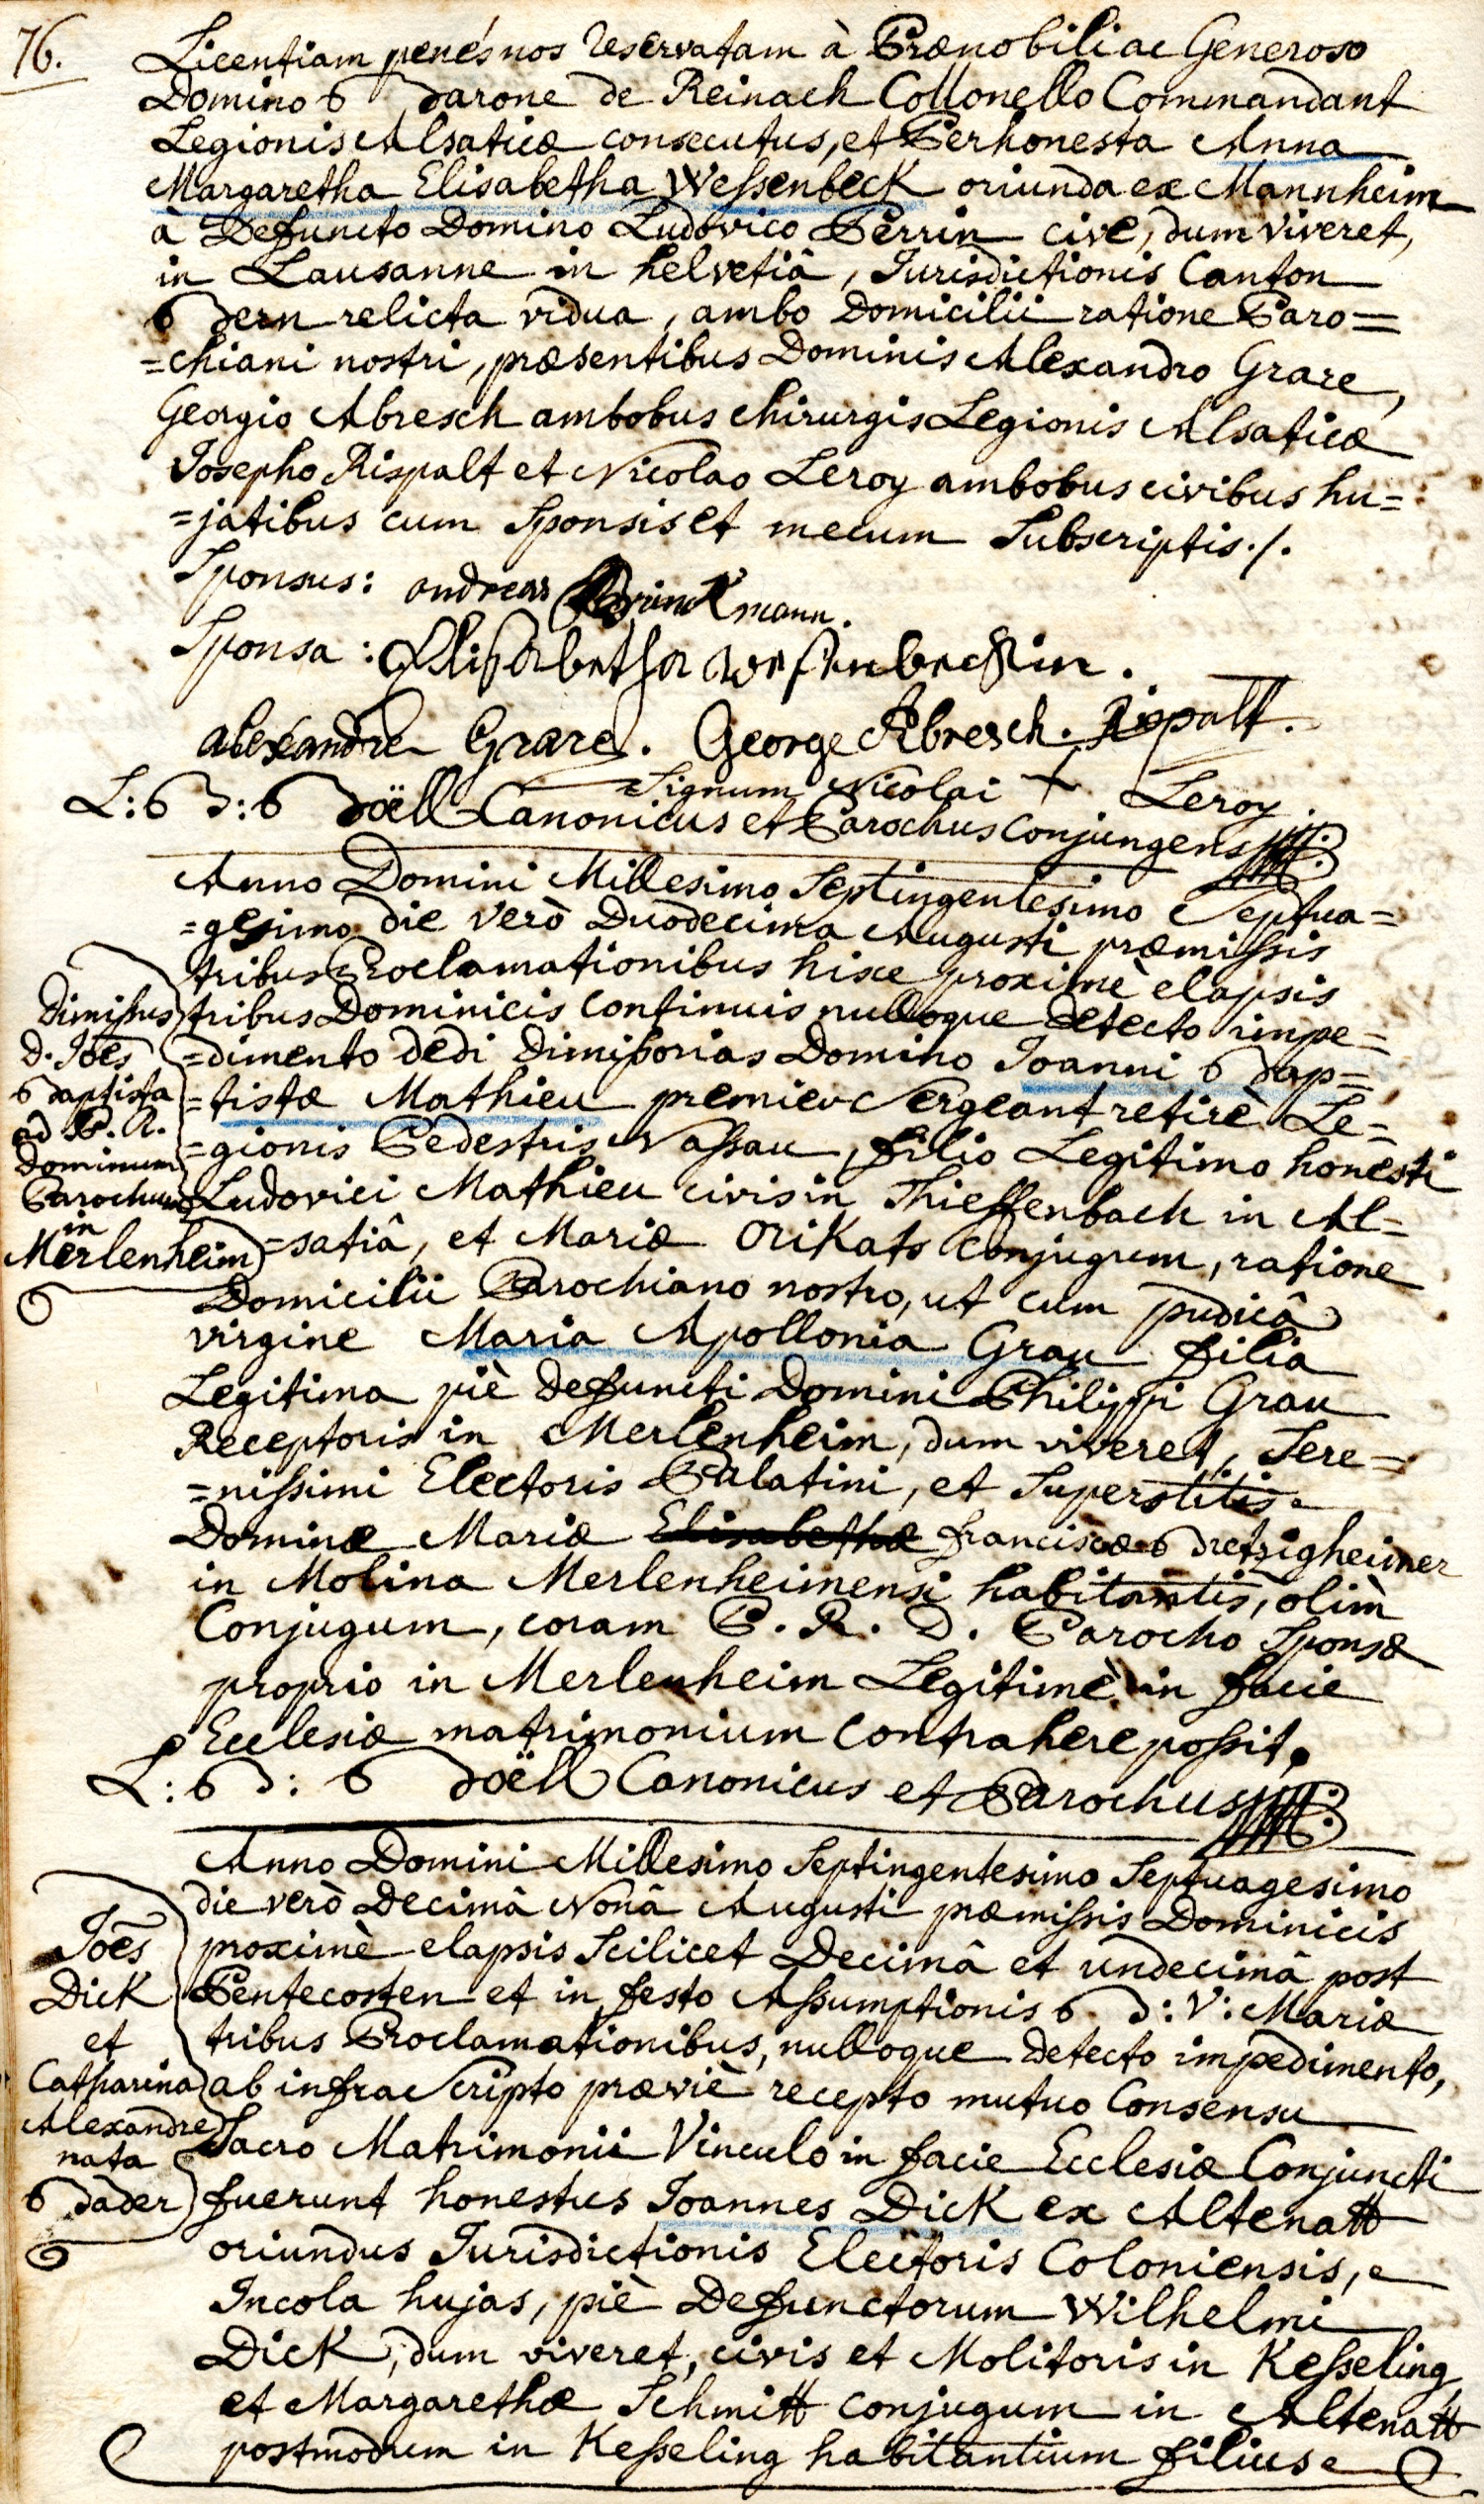 76.
Licentiam penès nos reservatam à Prænobili ac Generoso
Domino Barone de Reinach Collonello Commandant
Legionis Alsaticæ consecutus, et Perhonesta Anna
Margaretha Elisabetha Wessenbeck oriunda ex Mannheim
à Defuncto Domino Ludovico Perrin cive, dum viveret,
in Lausanne in helvetiâ, Jurisdictionis Canton
Bern relicta vidua, ambo Domicilii ratione Paro=
=chiani nostri, præsentibus Dominis Alexandro Grare,
Georgio Abresch ambobus chirurgis Legionis Alsaticæ
Josepho Rispalt et Nicolao Leroy ambobus civibus hu=
=jatibus cum Sponsis et mecum Subscriptis./.
Sponsus: andreas Brinckmann.
Sponsa: Elisabetha Wessenbeckin.
alexandre Grare. George Abresch. Rispalt.
Signum Nicolai + Leroy.
L:B:Boëll Canonicus et Parochus Conjungens
Anno Domini Millesimo Septingentesimo Septua=
=gesimo die verò Duodecima Augusti præmissis
tribus Proclamationibus hisce proximè elapsis
tribus Dominicis continuis nulloque detecto impe=
=dimento dedi Dimissorias Domino Joanni Bap=
=tistæ Mathieu premier Sergeant retirè Le=
=gionis Pedestris Nassau, filio Legitimo honesti
Ludovici Mathieu civis in Thieffenbach in Al=
=satiâ, et Mariæ Orikats Conjugum, ratione
Domicilii Parochiano nostro, ut cum pudicâ
virgine Maria Apollonia Grau filia
Legitima piè defuncti Domini Philippi Grau
Receptoris in Merlenheim, dum viveret, Sere=
=nissimi Electoris Palatini, et Superstitis
Dominæ Mariæ Elisabethæ franciscæ Bretzigheimer
in Molina Merlenheimensi habitantis, olim
Conjugum, coram P. R. D. Parocho Sponsæ
proprio in Merlenheim Legitimè in facie
Ecclesiæ matrimonium contrahere possit.
L:B: Boëll Canonicus et Parochus
Dimissus
d. Joes
Baptista
ad P. R.
Dominum
Parochum
in
Merlenheim
Anno Domini Millesimo Septingentesimo Septuagesimo
die verò Decimâ Nonâ Augusti præmissis Dominicis
proximè elapsis Scilicet Decimâ et undecimâ post
Pentecosten et in festo Assumptionis B: V: Mariæ
tribus Proclamationibus, nulloque detecto impedimento,
ab infra Scripto præviè recepto mutuo Consensu
Sacro Matrimonii Vinculo in facie Ecclesiæ Conjuncti
fuerunt honestus Joannes Dick ex Altenatt
oriundus Jurisdictionis Electoris Coloniensis,
Incola hujas, piè Defunctorum Wilhelmi
Dick, dum viveret, civis et Molitoris in Kesseling
et Margarethæ Schmitt conjugum in Altenatt
postmodum in Kesseling habitantium filius
Joes
Dick
et
Catharina
Alexandre
nata
Bader